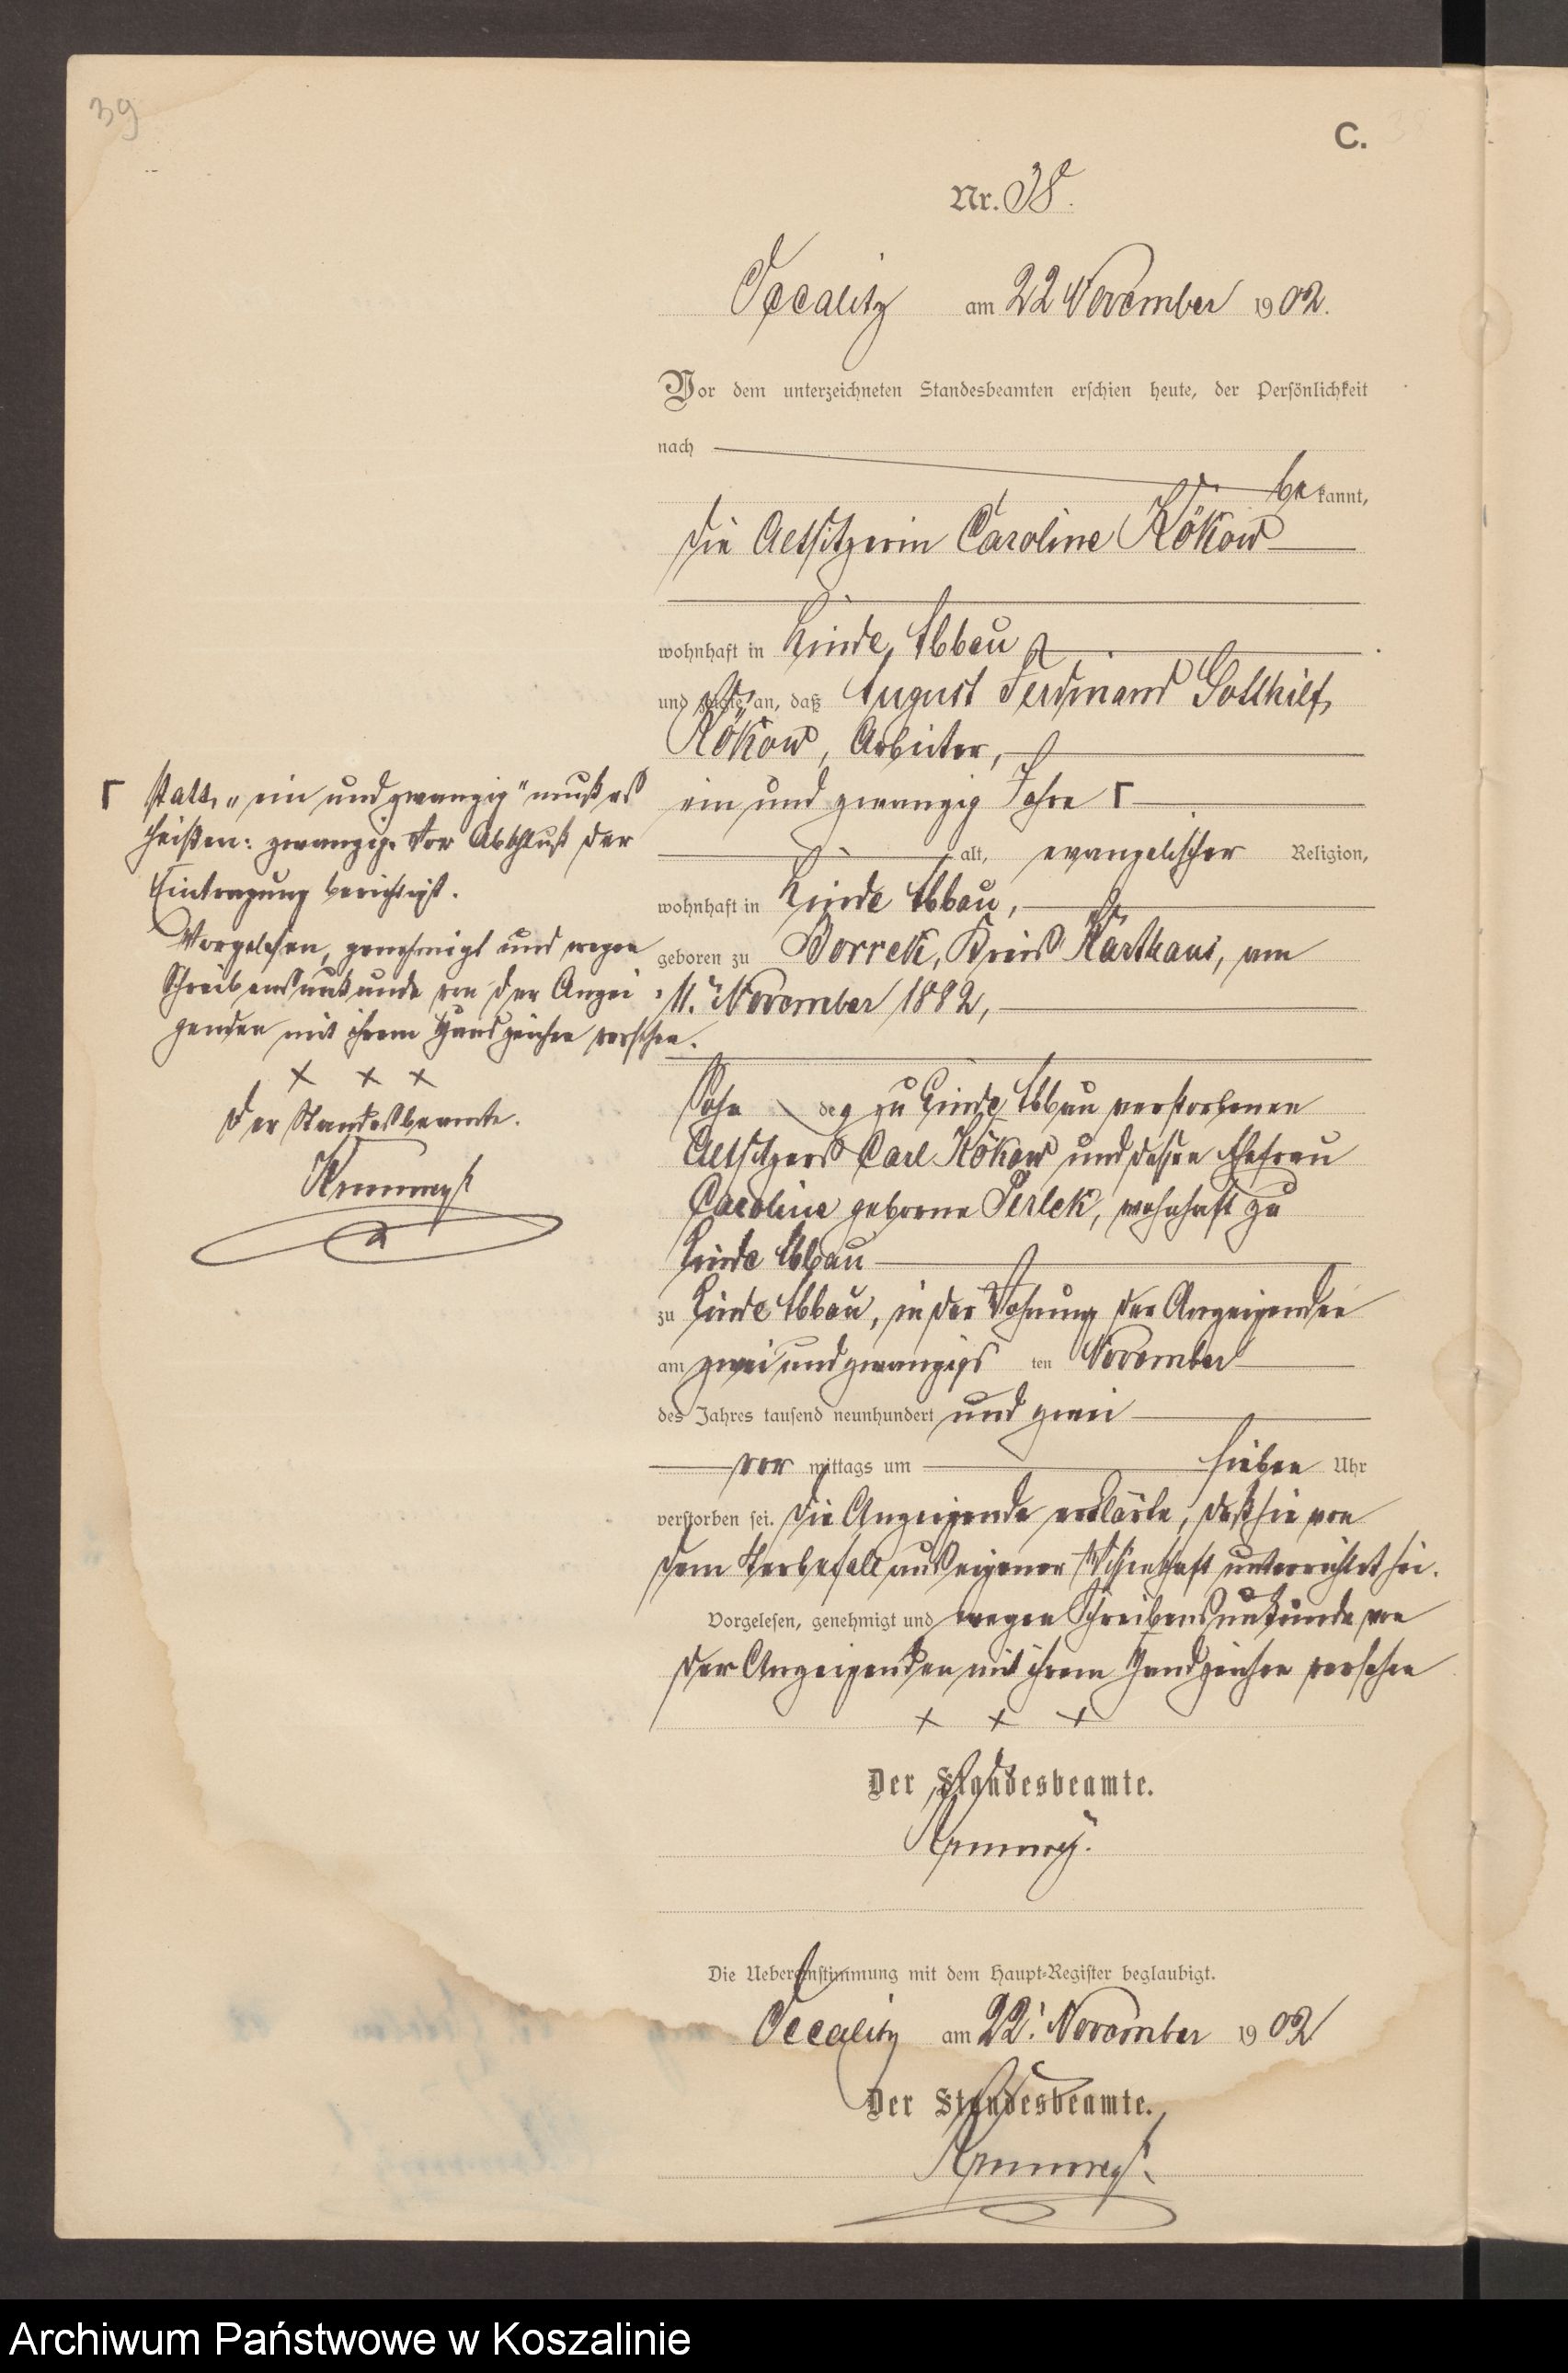 39
C.
Nr. 38.
Occalitz am 22 November 1902.
Vor dem unterzeichneten Standesbeamten erschien heute, der Persönlichkeit
nach
bekannt,
die Altsitzerin Caroline Kökow
wohnhaft in Linde Abbau
und zeigte an, daß August Ferdinand Gotthilf
Kökow, Arbeiter,
ein und zwanzig Jahre Γ
alt, evangelischer Religion,
wohnhaft in Linde Abbau,
geboren zu Borrek, Kreis Karthaus, am
11. November 1882,
Sohn des zu Linde Abbau verstorbenen
Altsitzers Carl Kökow und dessen Ehefrau
Caroline geborne Perlek, wohnhaft zu
Linde Abbau
zu Linde Abbau, in der Wohnung der Anzeigenden
am zwei und zwanzigsten November
des Jahres tausend neunhundert und zwei
vormittags um sieben Uhr
verstorben sei. Die Anzeigende erklärte, daß sie von
dem Sterbefall aus eigener Wissenschaft unterrichtet sei.
Vorgelesen, genehmigt und wegen Schreibensunkunde von
der Anzeigenden mit ihrem Handzeichen versehen
+ + +
Der Standesbeamte.
Die Uebereinstimmung mit dem Haupt-Register beglaubigt.
Occalitz am 22. November 1902
Der Standesbeamte.
Γ statt „ein und zwanzig" muß es
heißen: zwanzig. Vor Abschluß der
Eintragung berichtigt.
Vorgelesen, genehmigt und wegen
Schreibensunkunde von der Anzei
genden mit ihrem Handzeichen versehen.
+ + +
Der Standesbeamte.
Archiwum Państwowe w Koszalinie